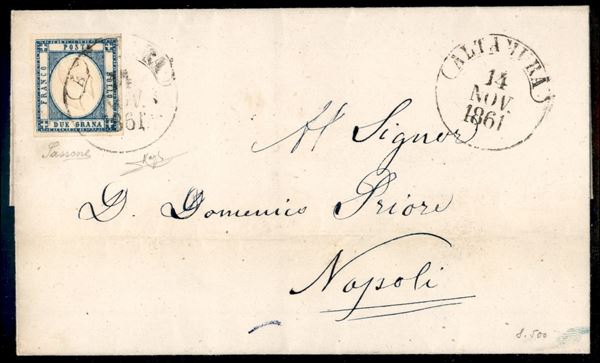 FRANCO
POSTA
BOLLO
DUE GRANA
14
NOV.
1861
ALTAMURA
14
NOV.
1861
Al Signor
D. Domenico Priore
Napoli
Sassone
8.500